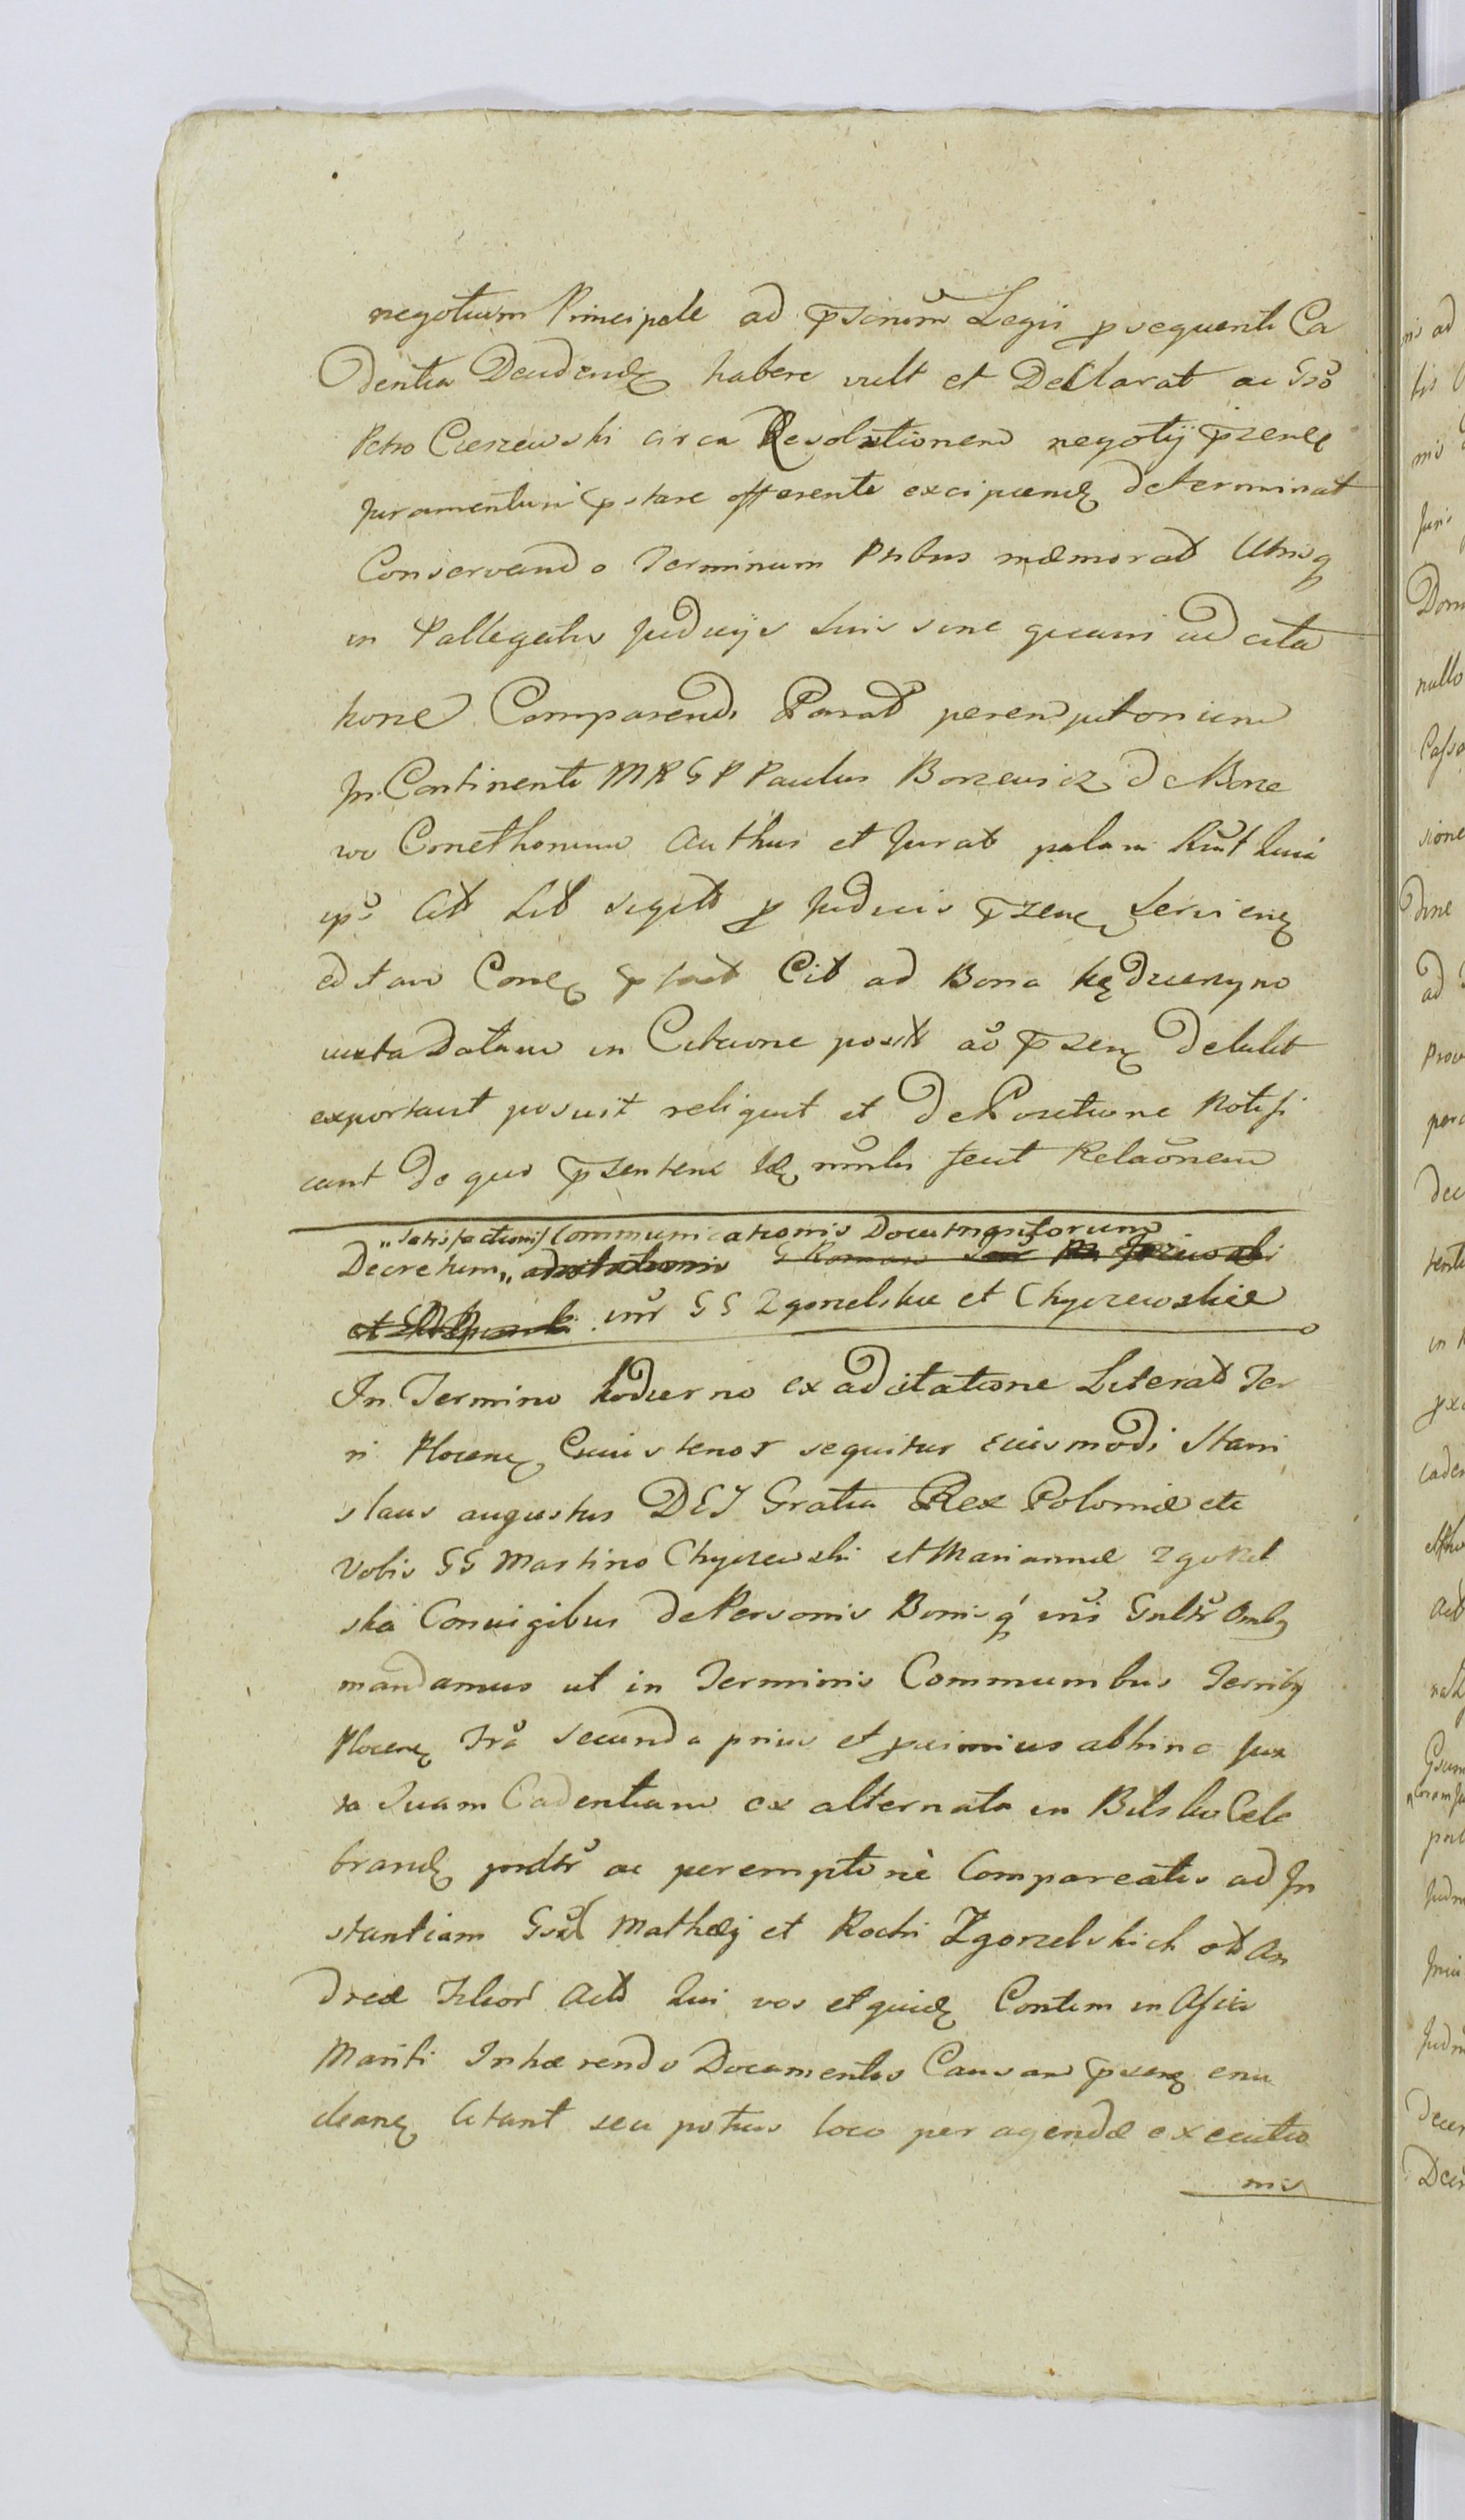 negotium Principale ad psinum Legis p sequenti Ca
dentia Deudend habere vult et Declarat ac Gso
Petro Cieszewski circa Resolutionem negotij pzene
Juramentum pstare offerente excipiend determinat
Conservando Terminum Ptibus memorat Utrisq
in Pallegatis Judicijs suis sine quavis adcita
tione Comparendi Parat peremptorium
In Continenti MRGP Paulus Borzewicz de Borze
wo Conethonum Authus et Jurat palam
ips Citt Litt sigill p Judicis pzene servien
editam Conc pfact Cit ad Bona Kędzierzyno
iuxta Datam in Citaione posit ac pzen Detulit
exportavit posuit reliquit et de Positione Notifi
cavit de quo pzentem Id mnlis fecit Relaonem
„Satisfactionis Communicationis Documentorum
Decretum „ adcitationis G Roman
inr GG Zgorzelskie et Chyczewskie
In Termino hodierno ex adcitatione Literat Ter
ri Plocen Cuius tenor sequitur eiusmodi Stani
slaus augustus DEI Gratia Rex Poloniæ etc
Vobis GG Martino Chyczewski et Mariannæ Zgorzel
ska Coniugibus de Personis Bonisq vris Gnltr Omby
mandamus ut in Terminis Communibus Terriby
Plocen Fra secunda prius et proximius abhinc Jux
ta suam Cadentiam ex alternata in Bilsko Cele
brand pndtr ac peremptoriè Compareatis ad In
stantiam Gsd Mathæi et Rochi Zgorzelskich ott An
dreæ Filior Actt Qui vos et quid Contem in Assia
Mariti Inhærendo Documentis Causam pzene enu
clean Citant seu potius loco peragendæ executio
nis